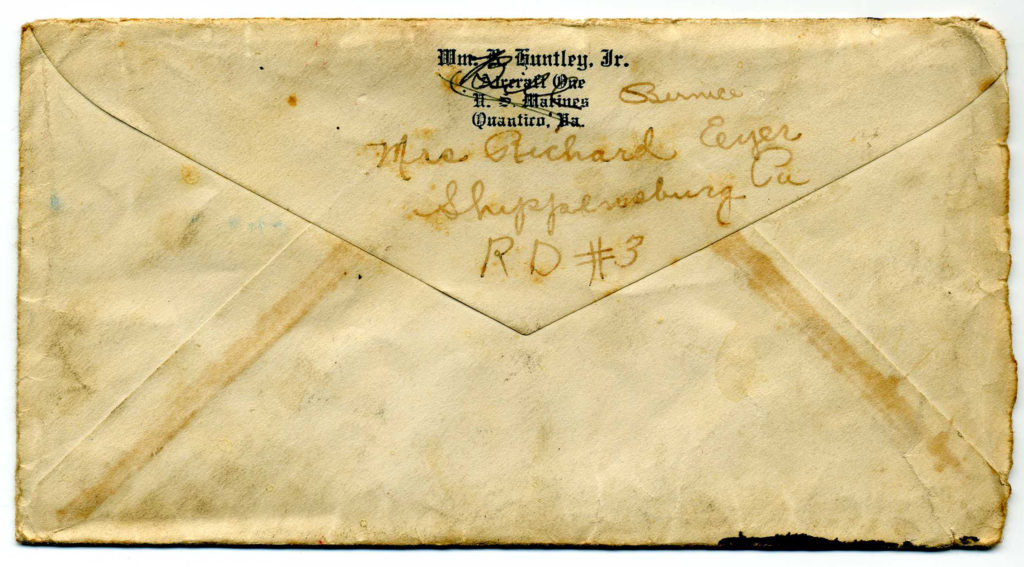 Wm. R. Huntley, Jr.
Aircraft One
U. S. Marines
Quantico, Va.
Bernice
Mrs Richard Eyer
Shippensburg Pa
R D #3